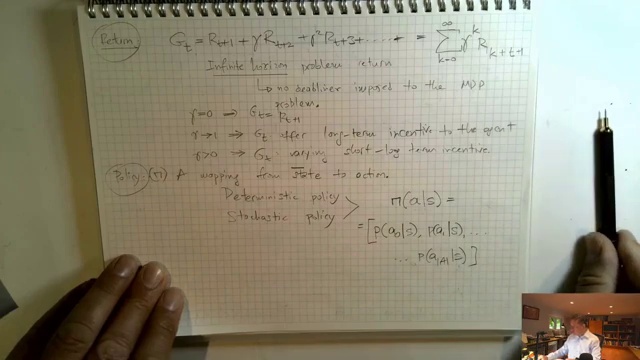 Return G_t = R_{t+1} + γ R_{t+2} + γ² R_{t+3} + ..... + = ∑_{k=0}^{∞} γ^k R_{k+t+1}
Infinite horizon problem return
↳ no deadlines imposed to the MDP
problem.
γ=0 → G_t = R_{t+1}
γ→1 ⇒ G_t offer long-term incentive to the agent
γ>0 ⇒ G_t varying short-log term incentive.
Policy (π) A mapping from state to action.
Deterministic policy
Stochastic policy
π(a|s) =
= [p(a_0|s), p(a_1|s), ...
... p(a_{|A|}|s)]